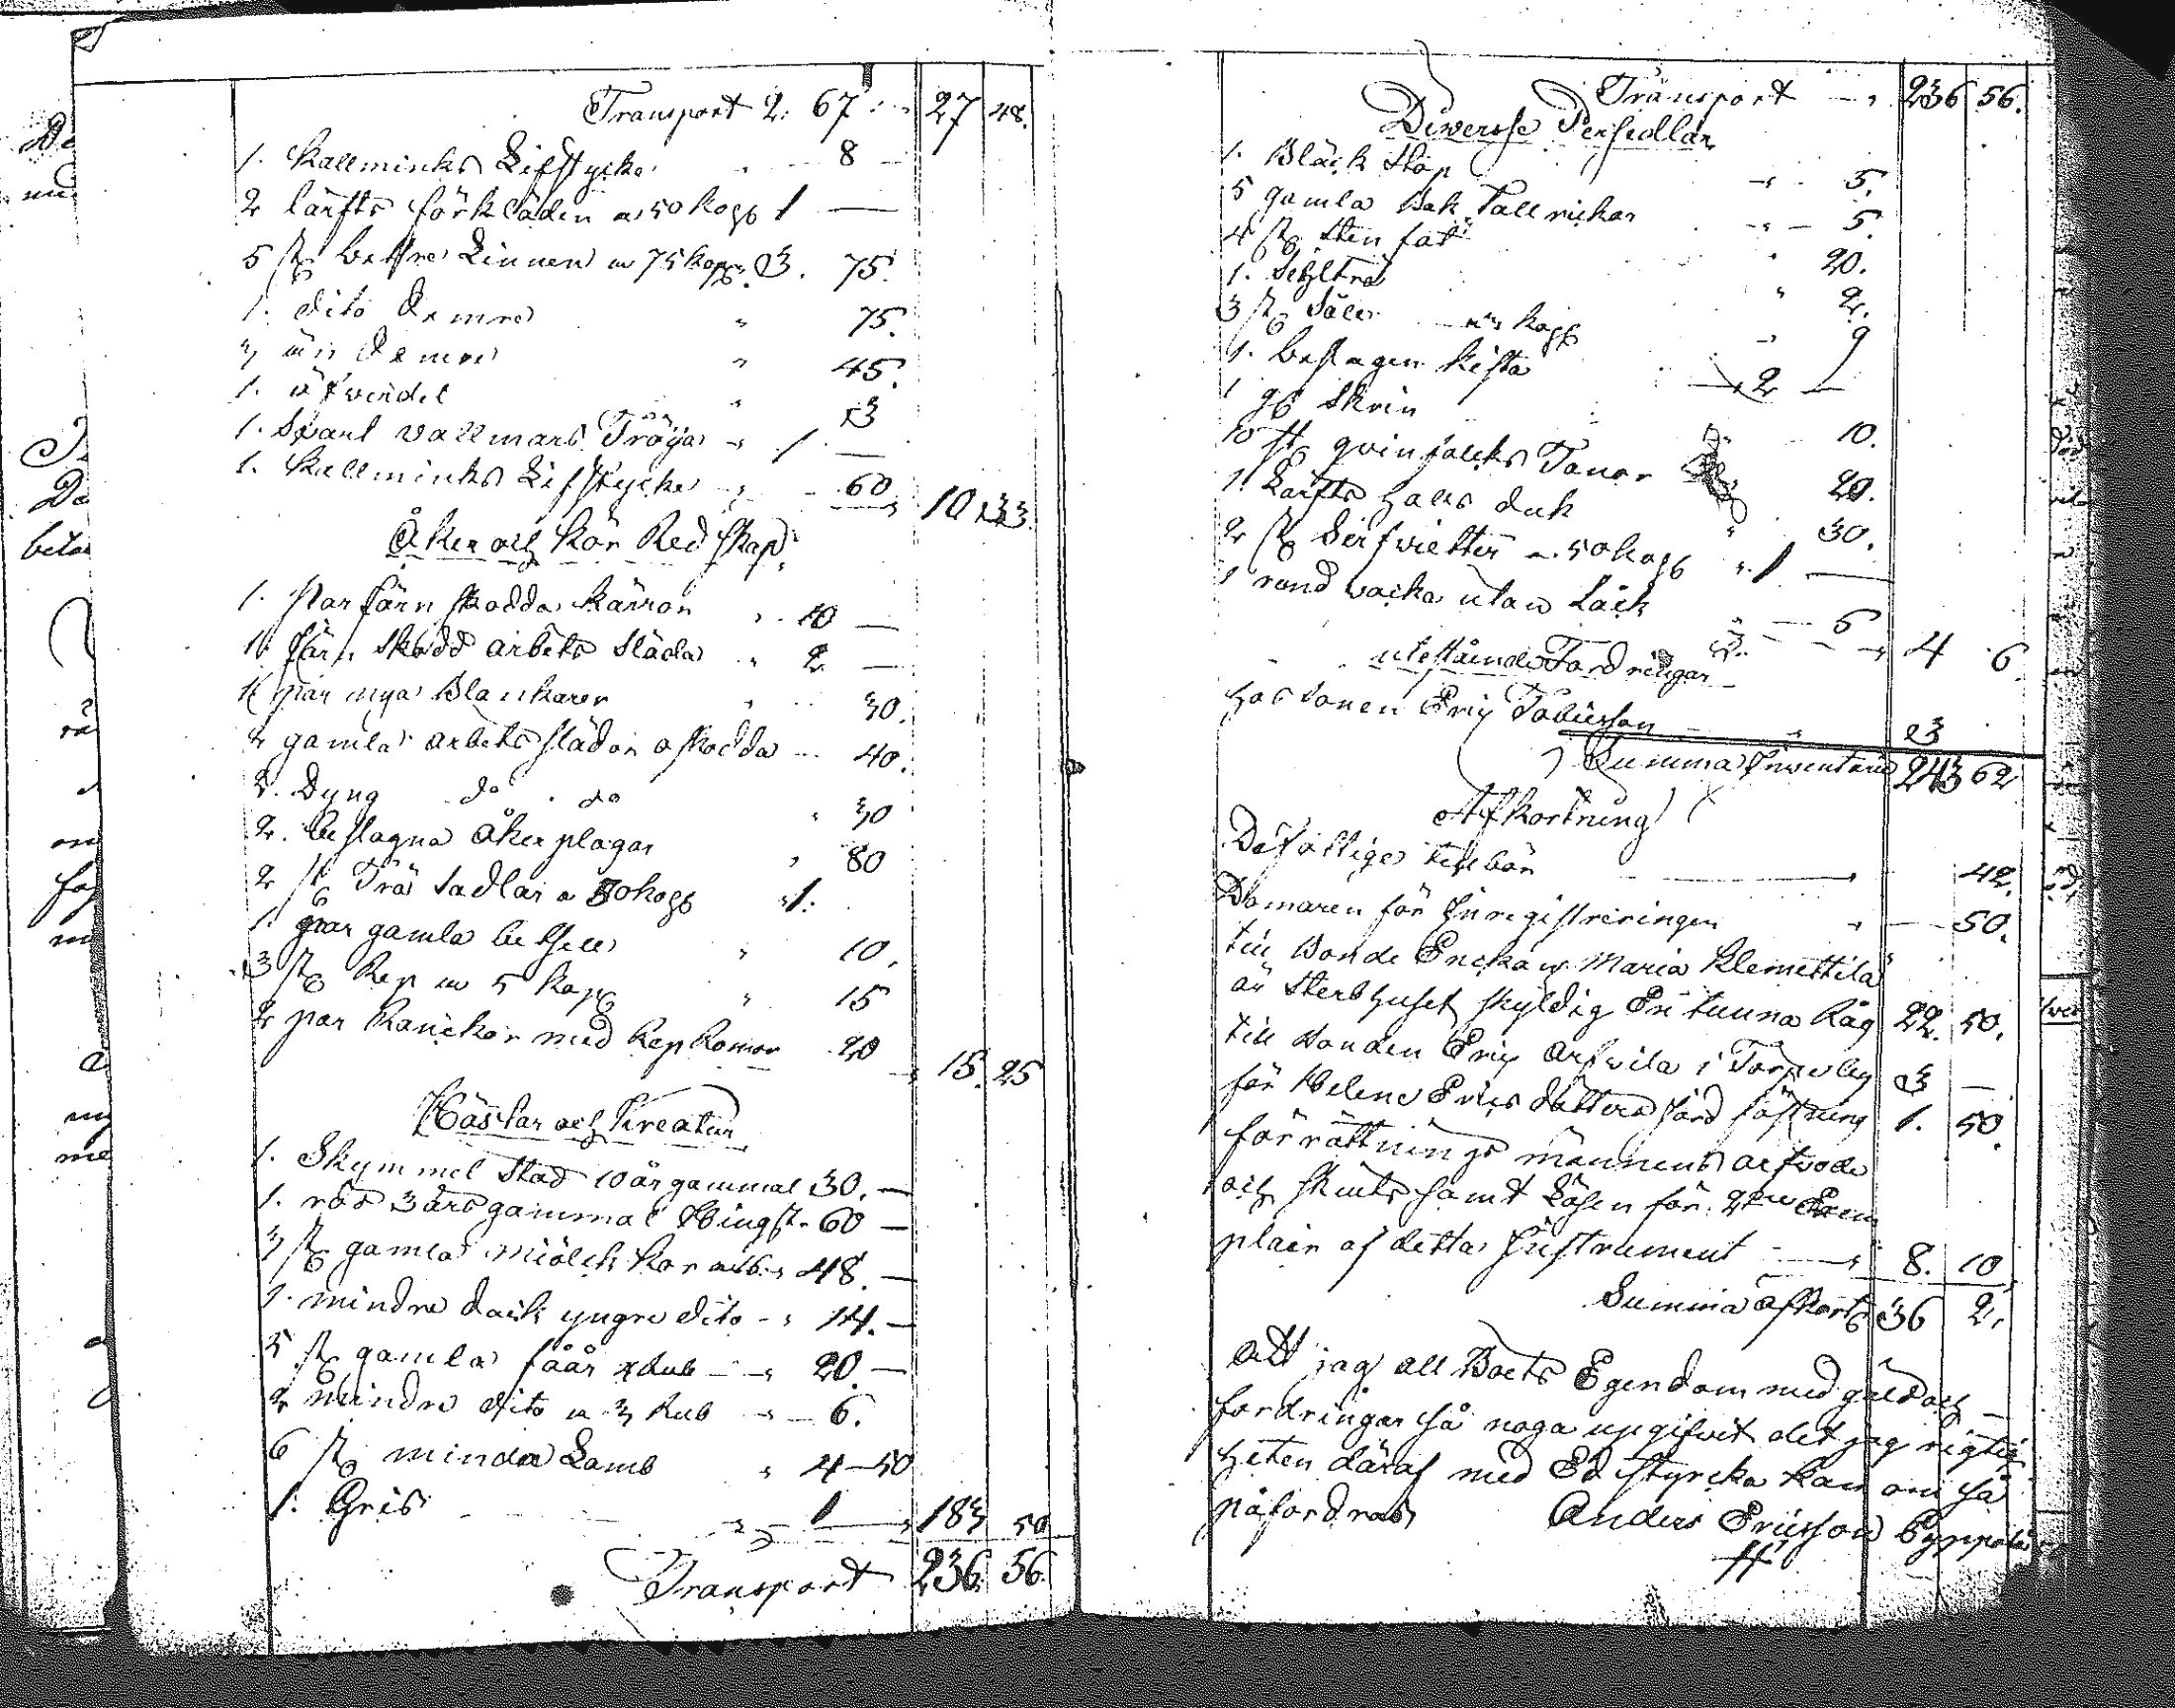 Transport 2. 67 27 48.
1. Kallminks Lifstycke 8
2 lärfts förkläden a 50 kop 1 —
5 st bettre Linnen a 75 kop 3. 75.
1. dito Semre 75.
1 än Semre 45.
1. 3
1. Svart vallmars Tröija 1 —
1. Kallminks Lifstycke 60 10 33.
Åker och Kör Redskap
1. par järn skodda kärror 10 —
1. järn skodd arbets Släda 2 —
1 par nya Blankarer 30.
2 gamla arbets slädor oskodda 40.
2. Dyng do do 30
2. beslagna åker plogar 80
2 st Trä Sadlar a 50 kop 1.
1. par gamla betsell 10.
3 st Rep a 5 kop 15
2 par Ranckor med Rep Romor 20
15. 25
Hästar och Kreatur
1. Skymmel Stod 10 år gammal 30. —
1. röd 3 års gammal Hingst 60 —
3 st gamla miölck kor a 16 48. —
1. mindre dock yngre dito 14. —
5 st gamla fåår 4 Rub 20. —
2 mindre dito a 3 Rub 6.
6 st mindre Lamb 4 — 50
1. Gris 1 183 50
Transport 236. 56.
Transport 236 56.
Diversse Persedlar
1. Bläck Stop 5.
5 gamla Bak Tallrickar 5.
4 st Sten fat 20.
1. 2.
3 st Såll a 3 kop 9
1. beslagen kista 2 —
1 Skrin 10.
10 st qvinfolcks 20.
1. Lärfts Hals duk 30.
2 st Serfvietter a 50 kop 1 —
1 rund vacka utan Låck 6
4 6
utestående Fordringar
Hos Bonen Eric Tobiesson 3
Summa Inventarie 243 62
Afkortning
De fattige tillbör 42.
Domaren för Inregistreringen 50.
till Bonde Enckan Maria Klemettilä
är Sterbhuset skyldig En tunna Råg 22. 50.
till Bonden Eric Arfvila i Torpeby 3 —
för Helena Ericsdotters jord fästning 1. 50.
förrättnings männens arfvode
och skiuts samt Lösen för 2ne Exem
plair af detta Instrument 8. 10
Summa afkort 36 2.
Att jag all Boets Egendom med gäld och
fordringar så noga upgifvit det jag rigtig
heten däraf med Ed styrcka kan om så
påfordras Anders Ericsson